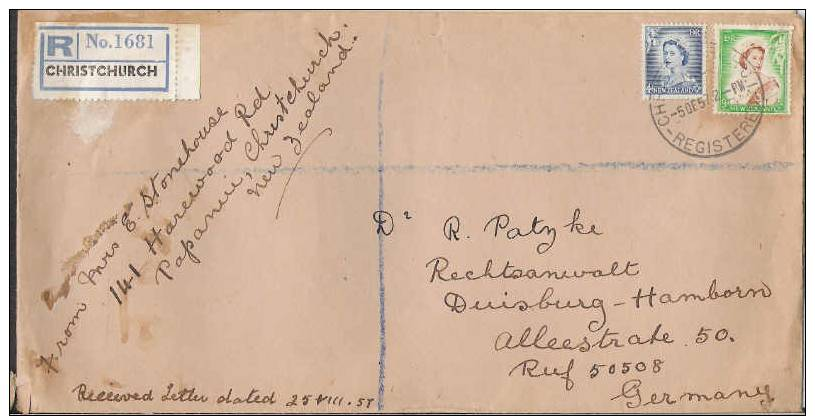 R No. 1681
CHRISTCHURCH
NEW ZEALAND
-5 DE 5
PM
REGISTERED
From Mrs E. Stonehouse
141 Harewood Rd
Papanui, Christchurch.
New Zealand.
Dr R. Patzke
Rechtsanwalt
Duisburg-Hamborn
Alleestrahe 50.
Ruf 50508
Germany
Received Letter dated 25 VIII. 57